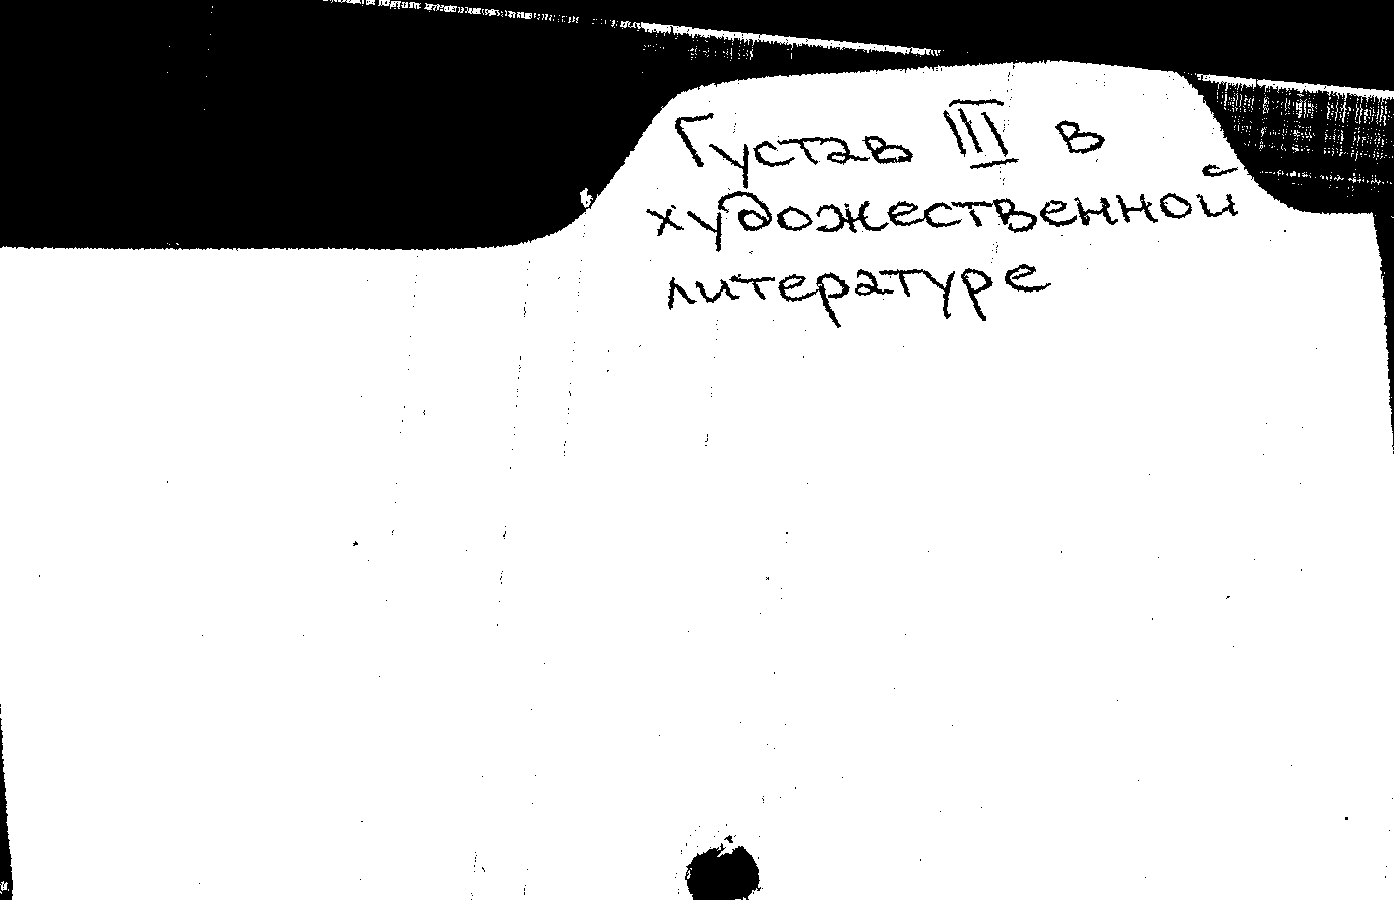 Густав III в
художественной
литературе